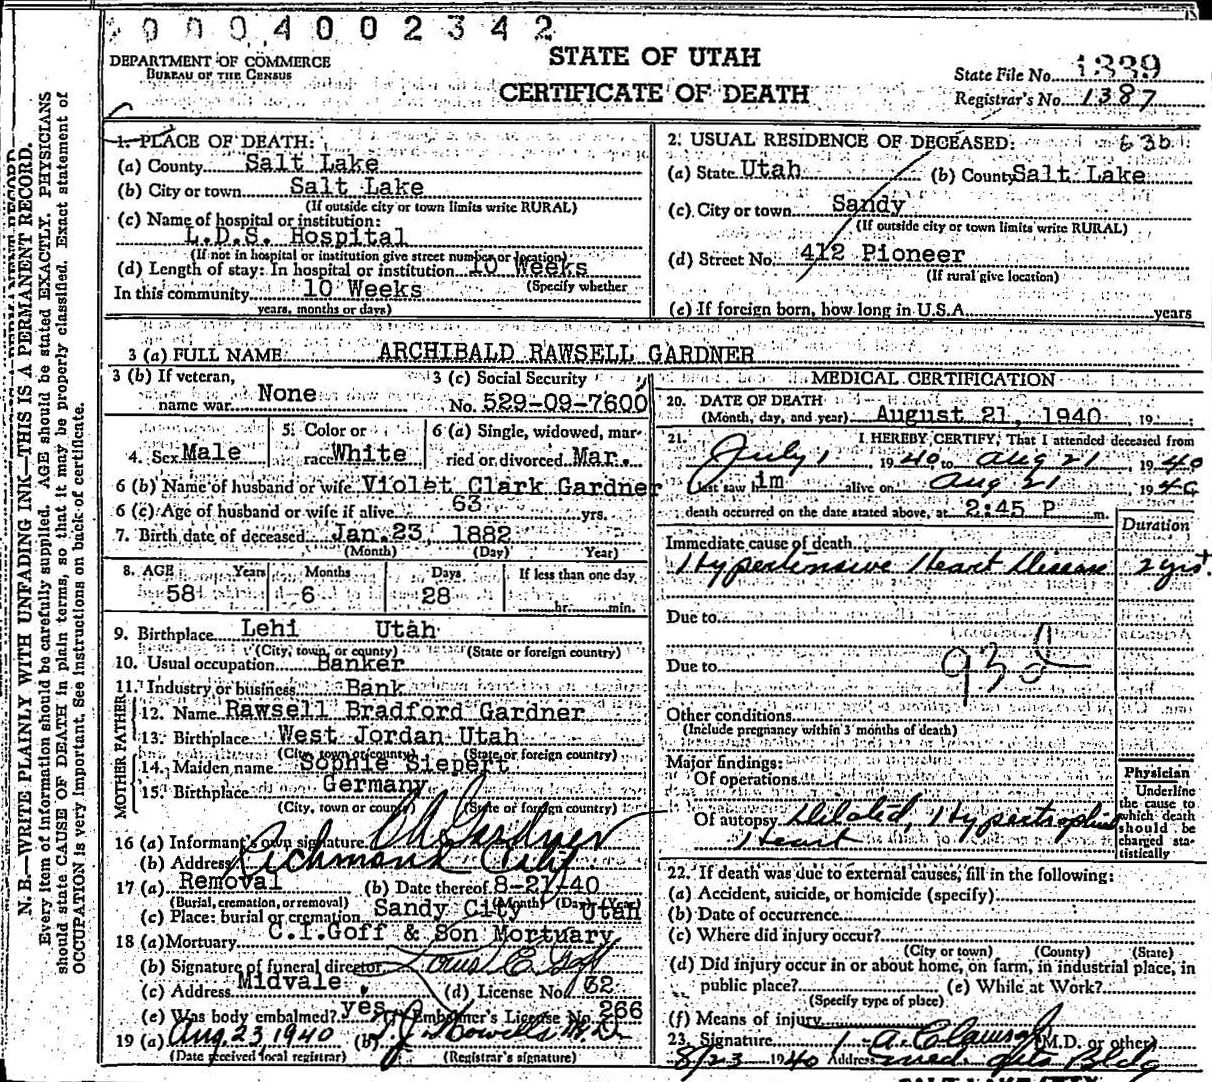 0004002342
STATE OF UTAH
CERTIFICATE OF DEATH
DEPARTMENT OF COMMERCE
BUREAU OF THE CENSUS
State File No. 1339
Registrar's No. 1387
N. B.—WRITE PLAINLY WITH UNFADING INK—THIS IS A PERMANENT RECORD.
Every item of information should be carefully supplied. AGE should be stated EXACTLY. PHYSICIANS
should state CAUSE OF DEATH in plain terms, so that it may be properly classified. Exact statement of
OCCUPATION is very important. See instructions on back of certificate.
1. PLACE OF DEATH:
(a) County Salt Lake
(b) City or town Salt Lake
(If outside city or town limits write RURAL)
(c) Name of hospital or institution:
L.D.S. Hospital
(If not in hospital or institution give street number or location)
(d) Length of stay: In hospital or institution 10 Weeks
(Specify whether
In this community 10 Weeks
years, months or days)
2. USUAL RESIDENCE OF DECEASED: 63b
(a) State Utah (b) County Salt Lake
(c) City or town Sandy
(If outside city or town limits write RURAL)
(d) Street No. 412 Pioneer
(If rural give location)
(e) If foreign born, how long in U.S.A. years
3 (a) FULL NAME ARCHIBALD RAWSELL GARDNER
3 (b) If veteran,
name war None
3 (c) Social Security
No. 529-09-7600
4. Sex Male
5. Color or
race White
6 (a) Single, widowed, mar-
ried or divorced Mar.
6 (b) Name of husband or wife Violet Clark Gardner
6 (c) Age of husband or wife if alive 63 yrs.
7. Birth date of deceased Jan. 23, 1882
(Month) (Day) Year)
8. AGE Years Months Days If less than one day
58 6 28 hr. min.
9. Birthplace Lehi Utah
(City, town, or county) (State or foreign country)
10. Usual occupation Banker
11. Industry or business Bank
FATHER
12. Name Rawsell Bradford Gardner
13. Birthplace West Jordan Utah
(City, town or county) (State or foreign country)
MOTHER
14. Maiden name Sophie Siepert
15. Birthplace Germany
(City, town or county) (State or foreign country)
16 (a) Informant's own signature Gardner
(b) Address Richmond Calif
17 (a) Removal (b) Date thereof 8-21-40
(Burial, cremation, or removal) (Month) (Day) (Year)
(c) Place: burial or cremation Sandy City Utah
18 (a) Mortuary C.I.Goff & Son Mortuary
(b) Signature of funeral director Goff
(c) Address Midvale (d) License No. 62
(e) Was body embalmed? yes Embalmer's License No. 266
19 (a) Aug. 23, 1940 (b) M.D.
(Date received local registrar) (Registrar's signature)
MEDICAL CERTIFICATION
20. DATE OF DEATH
(Month, day, and year) August 21, 1940 , 19
21. I HEREBY CERTIFY, That I attended deceased from
July 1 1940, to Aug 21 1940
last saw him alive on Aug 21 1940
death occurred on the date stated above, at 2:45 P m.
Duration
Immediate cause of death
Hypertensive Heart Disease 2 yrs+
Due to
Due to 93d
Other conditions
(Include pregnancy within 3 months of death)
Major findings:
Of operations
Of autopsy Dilated, Hypertrophied
Heart
Physician
Underline
the cause to
which death
should be
charged sta-
tistically
22. If death was due to external causes, fill in the following:
(a) Accident, suicide, or homicide (specify)
(b) Date of occurrence
(c) Where did injury occur?
(City or town) (County) (State)
(d) Did injury occur in or about home, on farm, in industrial place, in
public place? (e) While at Work?
(Specify type of place)
(f) Means of injury
23. Signature Clawson (M.D. or other)
8/23 1940 Address Med. Arts Bldg